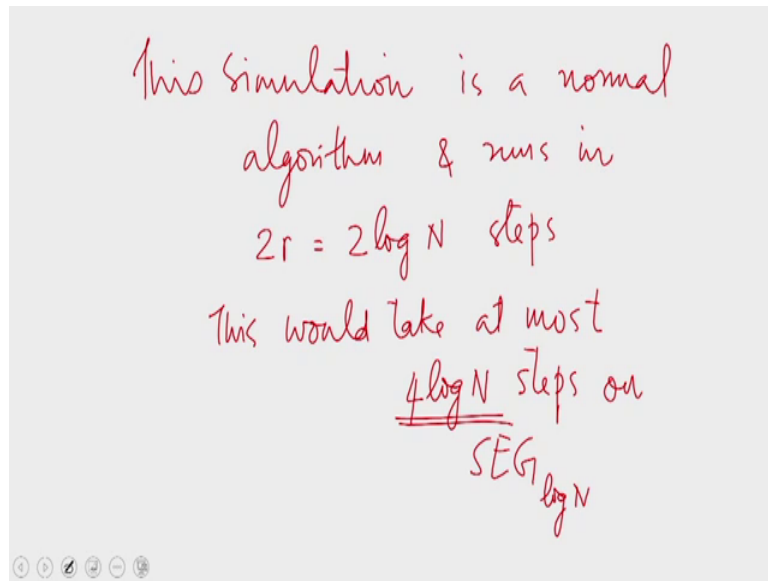 This Simulation is a normal
algorithm & runs in
2r = 2 log N steps
This would take at most
4 log N steps on
SEG log N